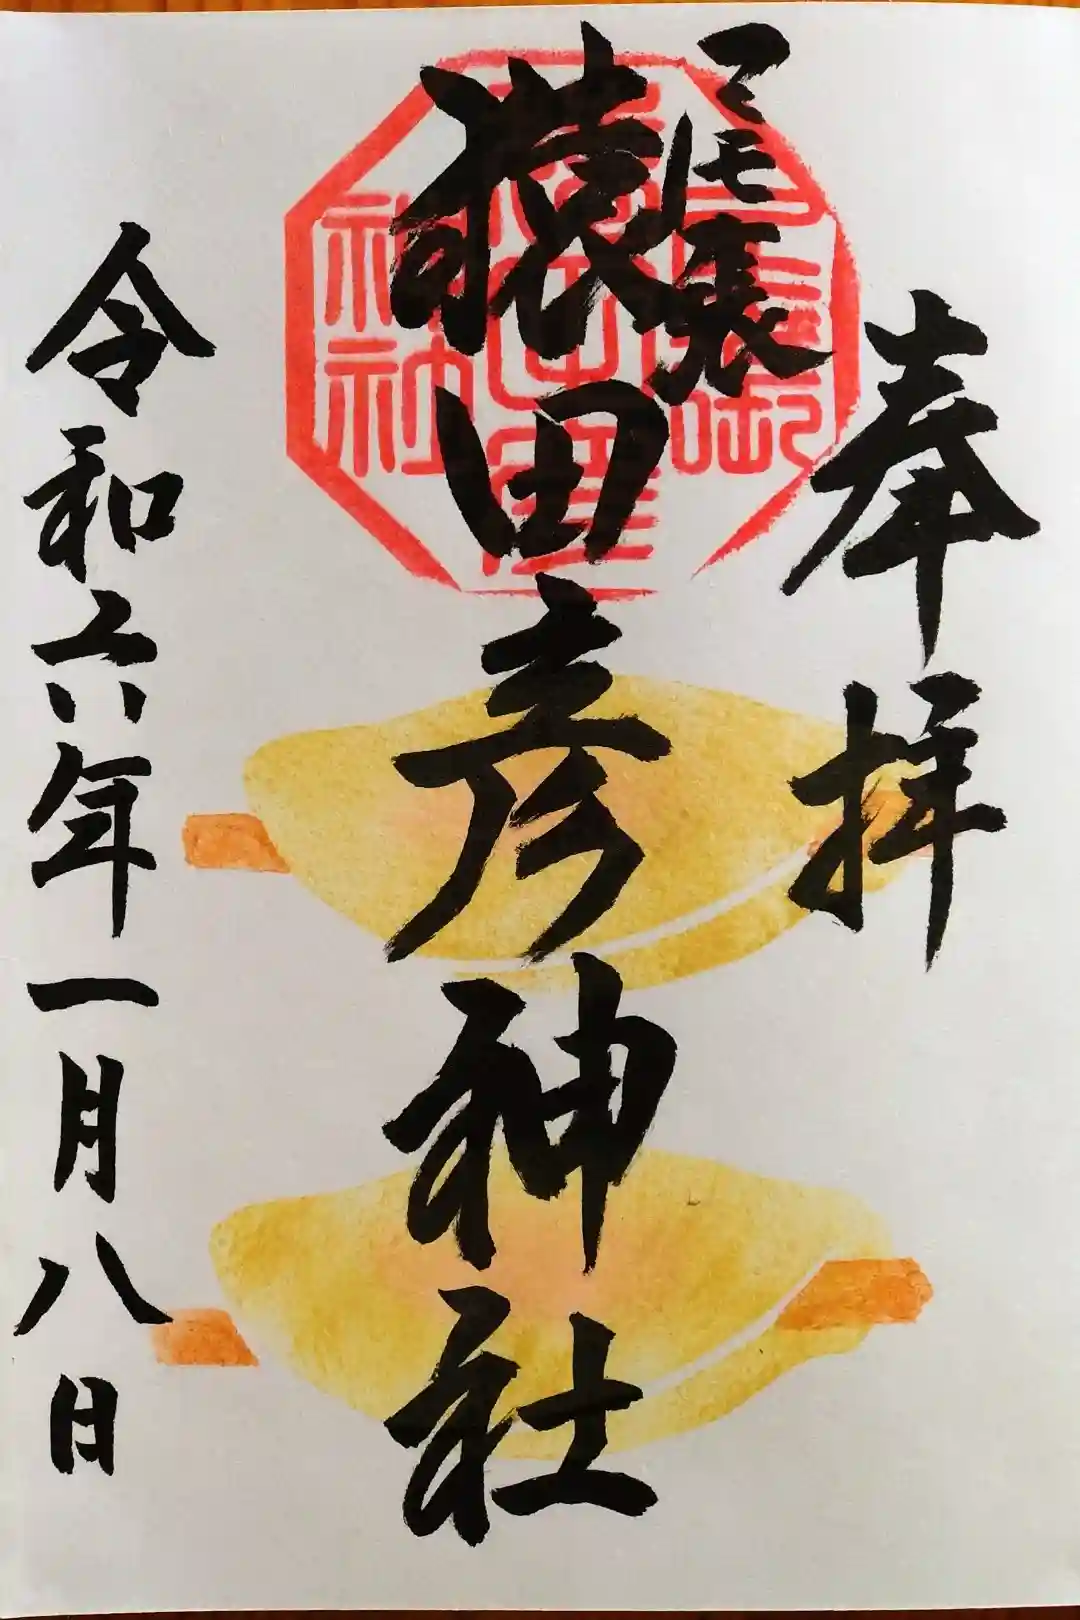 奉拝
猿田彦神社
神社
令和六年一月八日